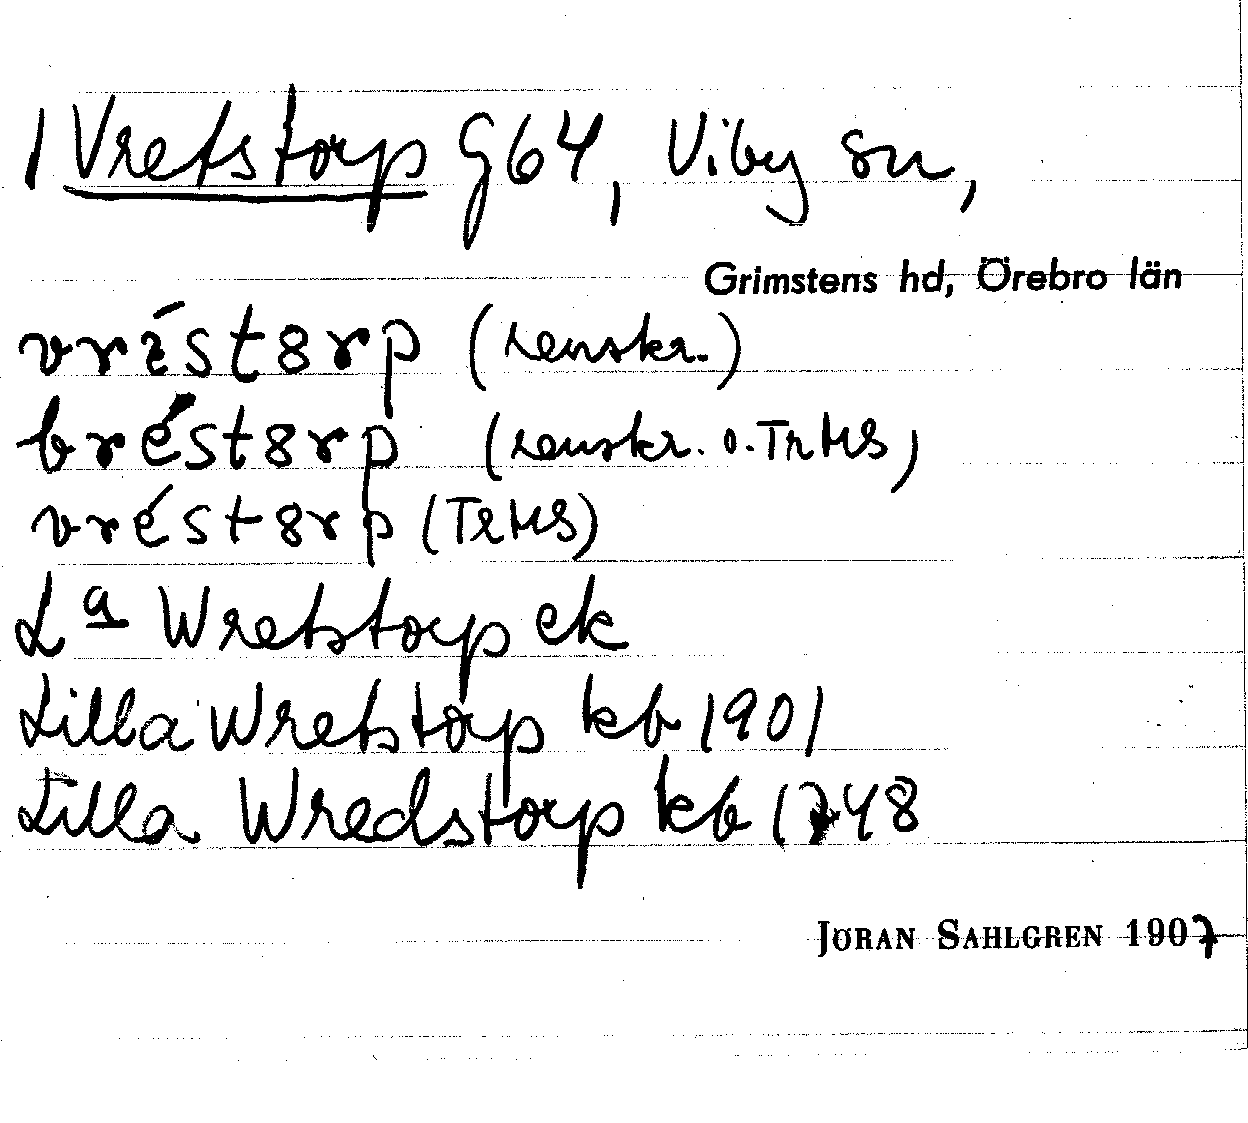 1 Vretstorp G64, Viby sn,
Grimstens hd, Örebro län
vréstɞrp (renskr.)
bréstɞrp (renskr. o. TrHS)
vréstɞrp (TrHS)
La Wretstorp ek
Lilla Wretstorp kb 1901
Lilla Wredstorp kb 1748
JÖRAN SAHLGREN 1907